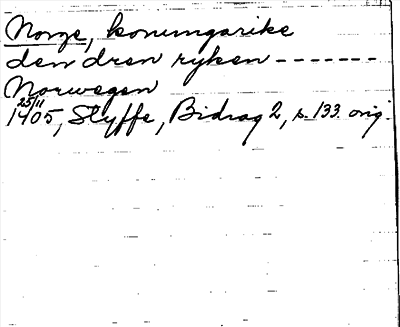 Norge, konungarike
den dren ryken -------
Norwegen
25/11
1405, Styffe, Bidrag 2, s. 133. orig.